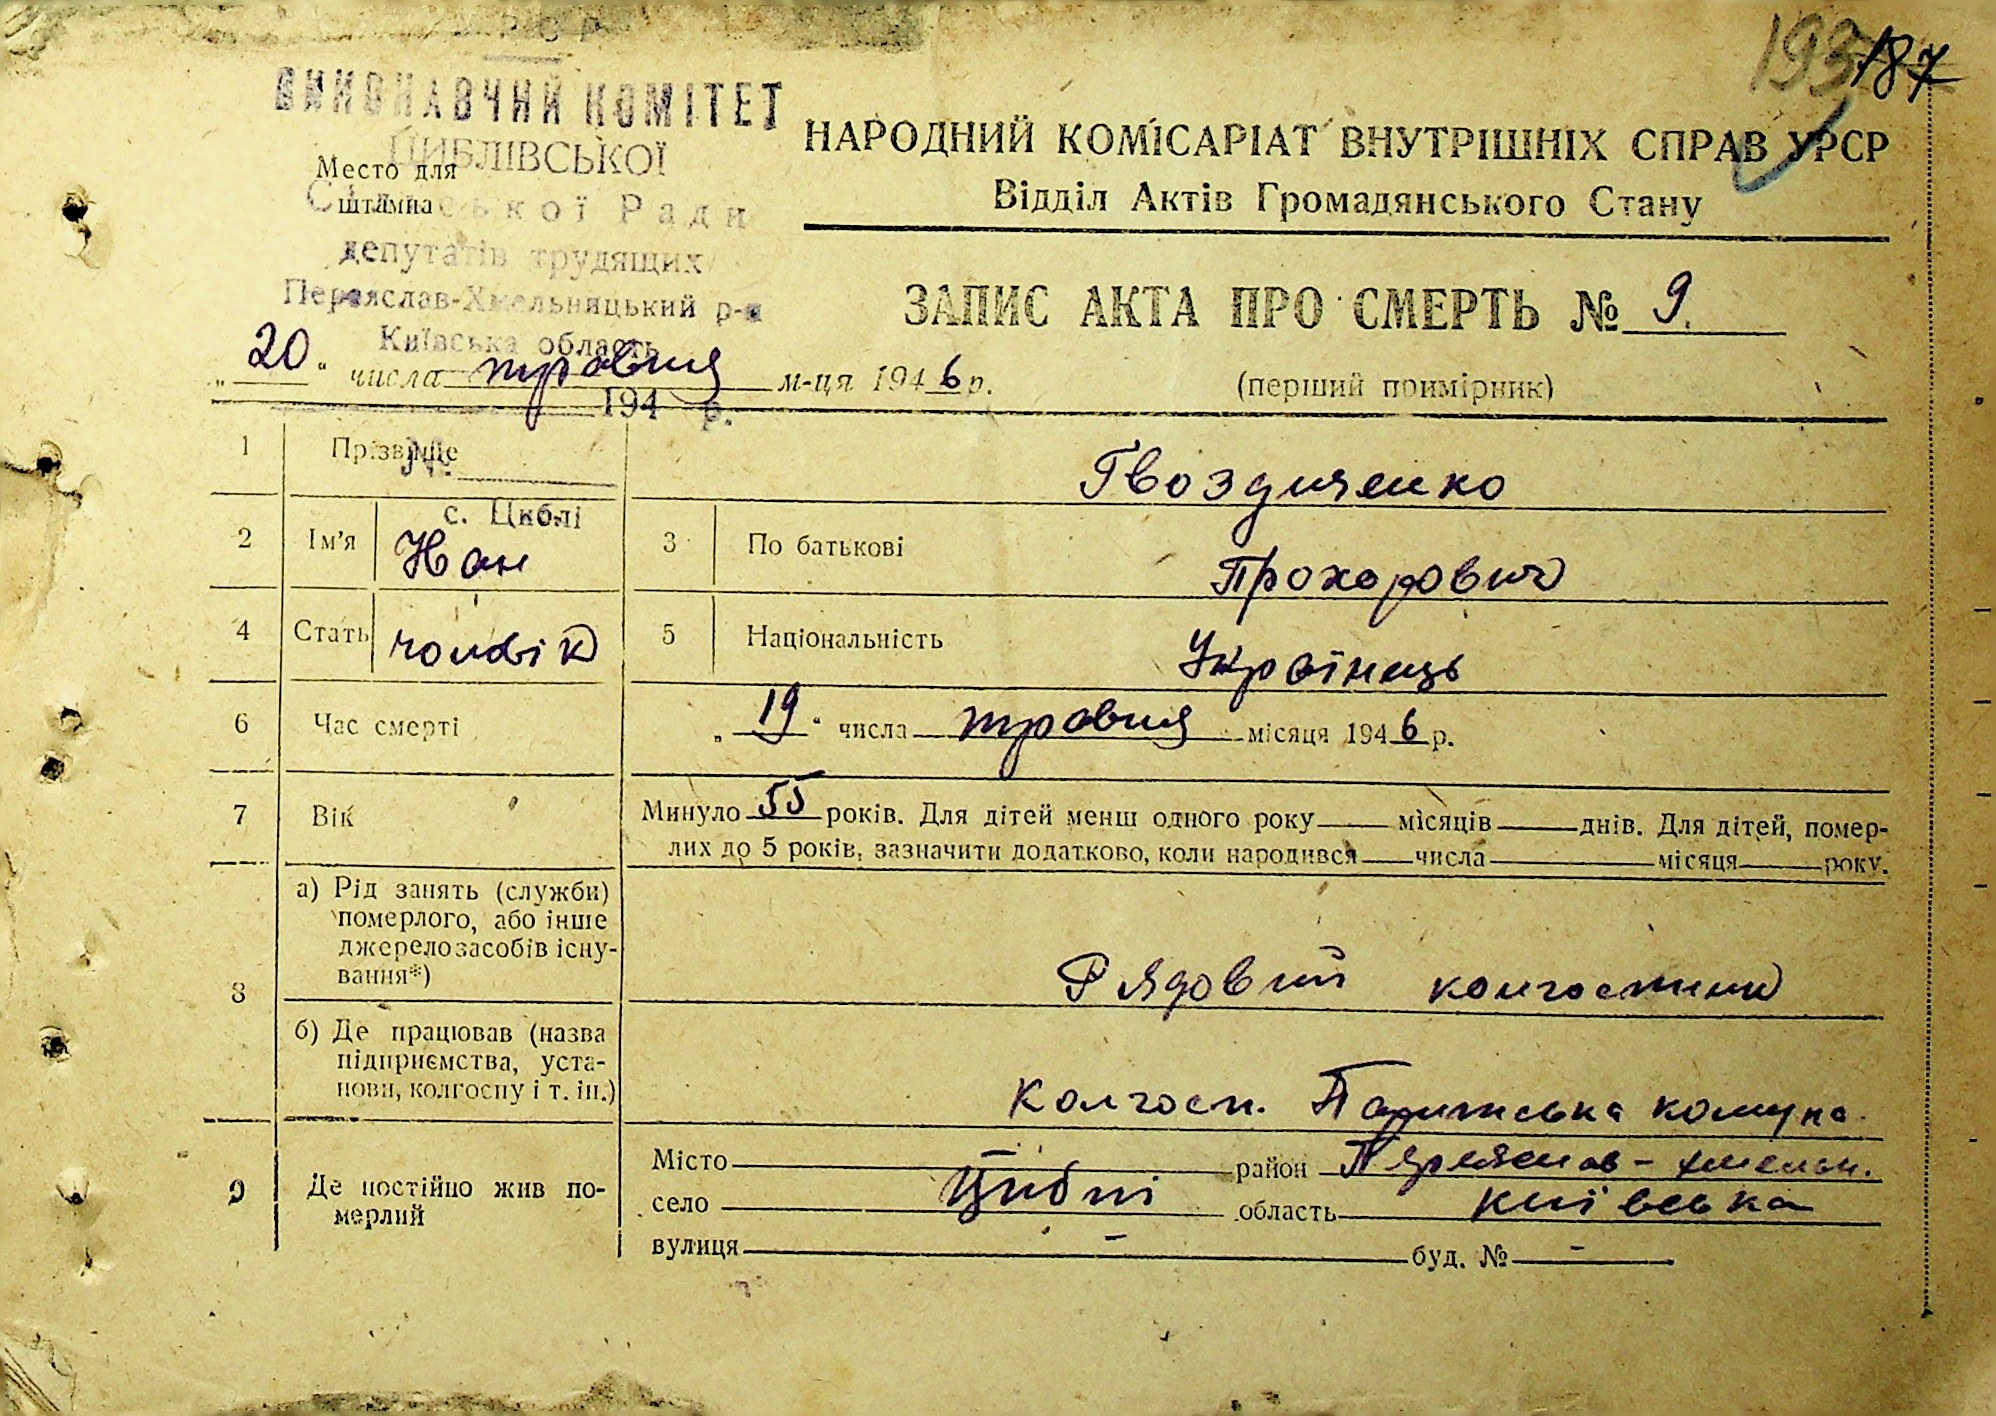 193 187
ВИКОНАВЧИЙ КОМІТЕТ
ЦИБЛІВСЬКОЇ
Место для
штампа
Сільської Ради
депутатів трудящих
Переяслав-Хмельницький р-н
Київська область
НАРОДНИЙ КОМІСАРІАТ ВНУТРІШНІХ СПРАВ УРСР
Відділ Актів Громадянського Стану
ЗАПИС АКТА ПРО СМЕРТЬ № 9.
„20“ числа травня м-ця 1946 р.
(перший примірник)
194 р.
№
с. Циблі
1 Прізвище Гвоздиченко
2 Ім'я 3 По батькові Прохорович
4 Стать чоловік 5 Національність Українець
6 Час смерті „19“ числа травня місяця 1946 р.
7 Вік Минуло 55 років. Для дітей менш одного року місяців днів. Для дітей, помер-
лих до 5 років, зазначити додатково, коли народився числа місяця року.
8 а) Рід занять (служби)
померлого, або інше
джерело засобів існу-
вання*)
Рядовий колгоспник
б) Де працював (назва
підприємства, уста-
нови, колгоспу і т. ін.)
Колгосп. Паризська комуна.
9 Де постійно жив по-
мерлий
Місто — район Переяслав-Хмельн.
село Циблі область Київська
вулиця — буд. № —